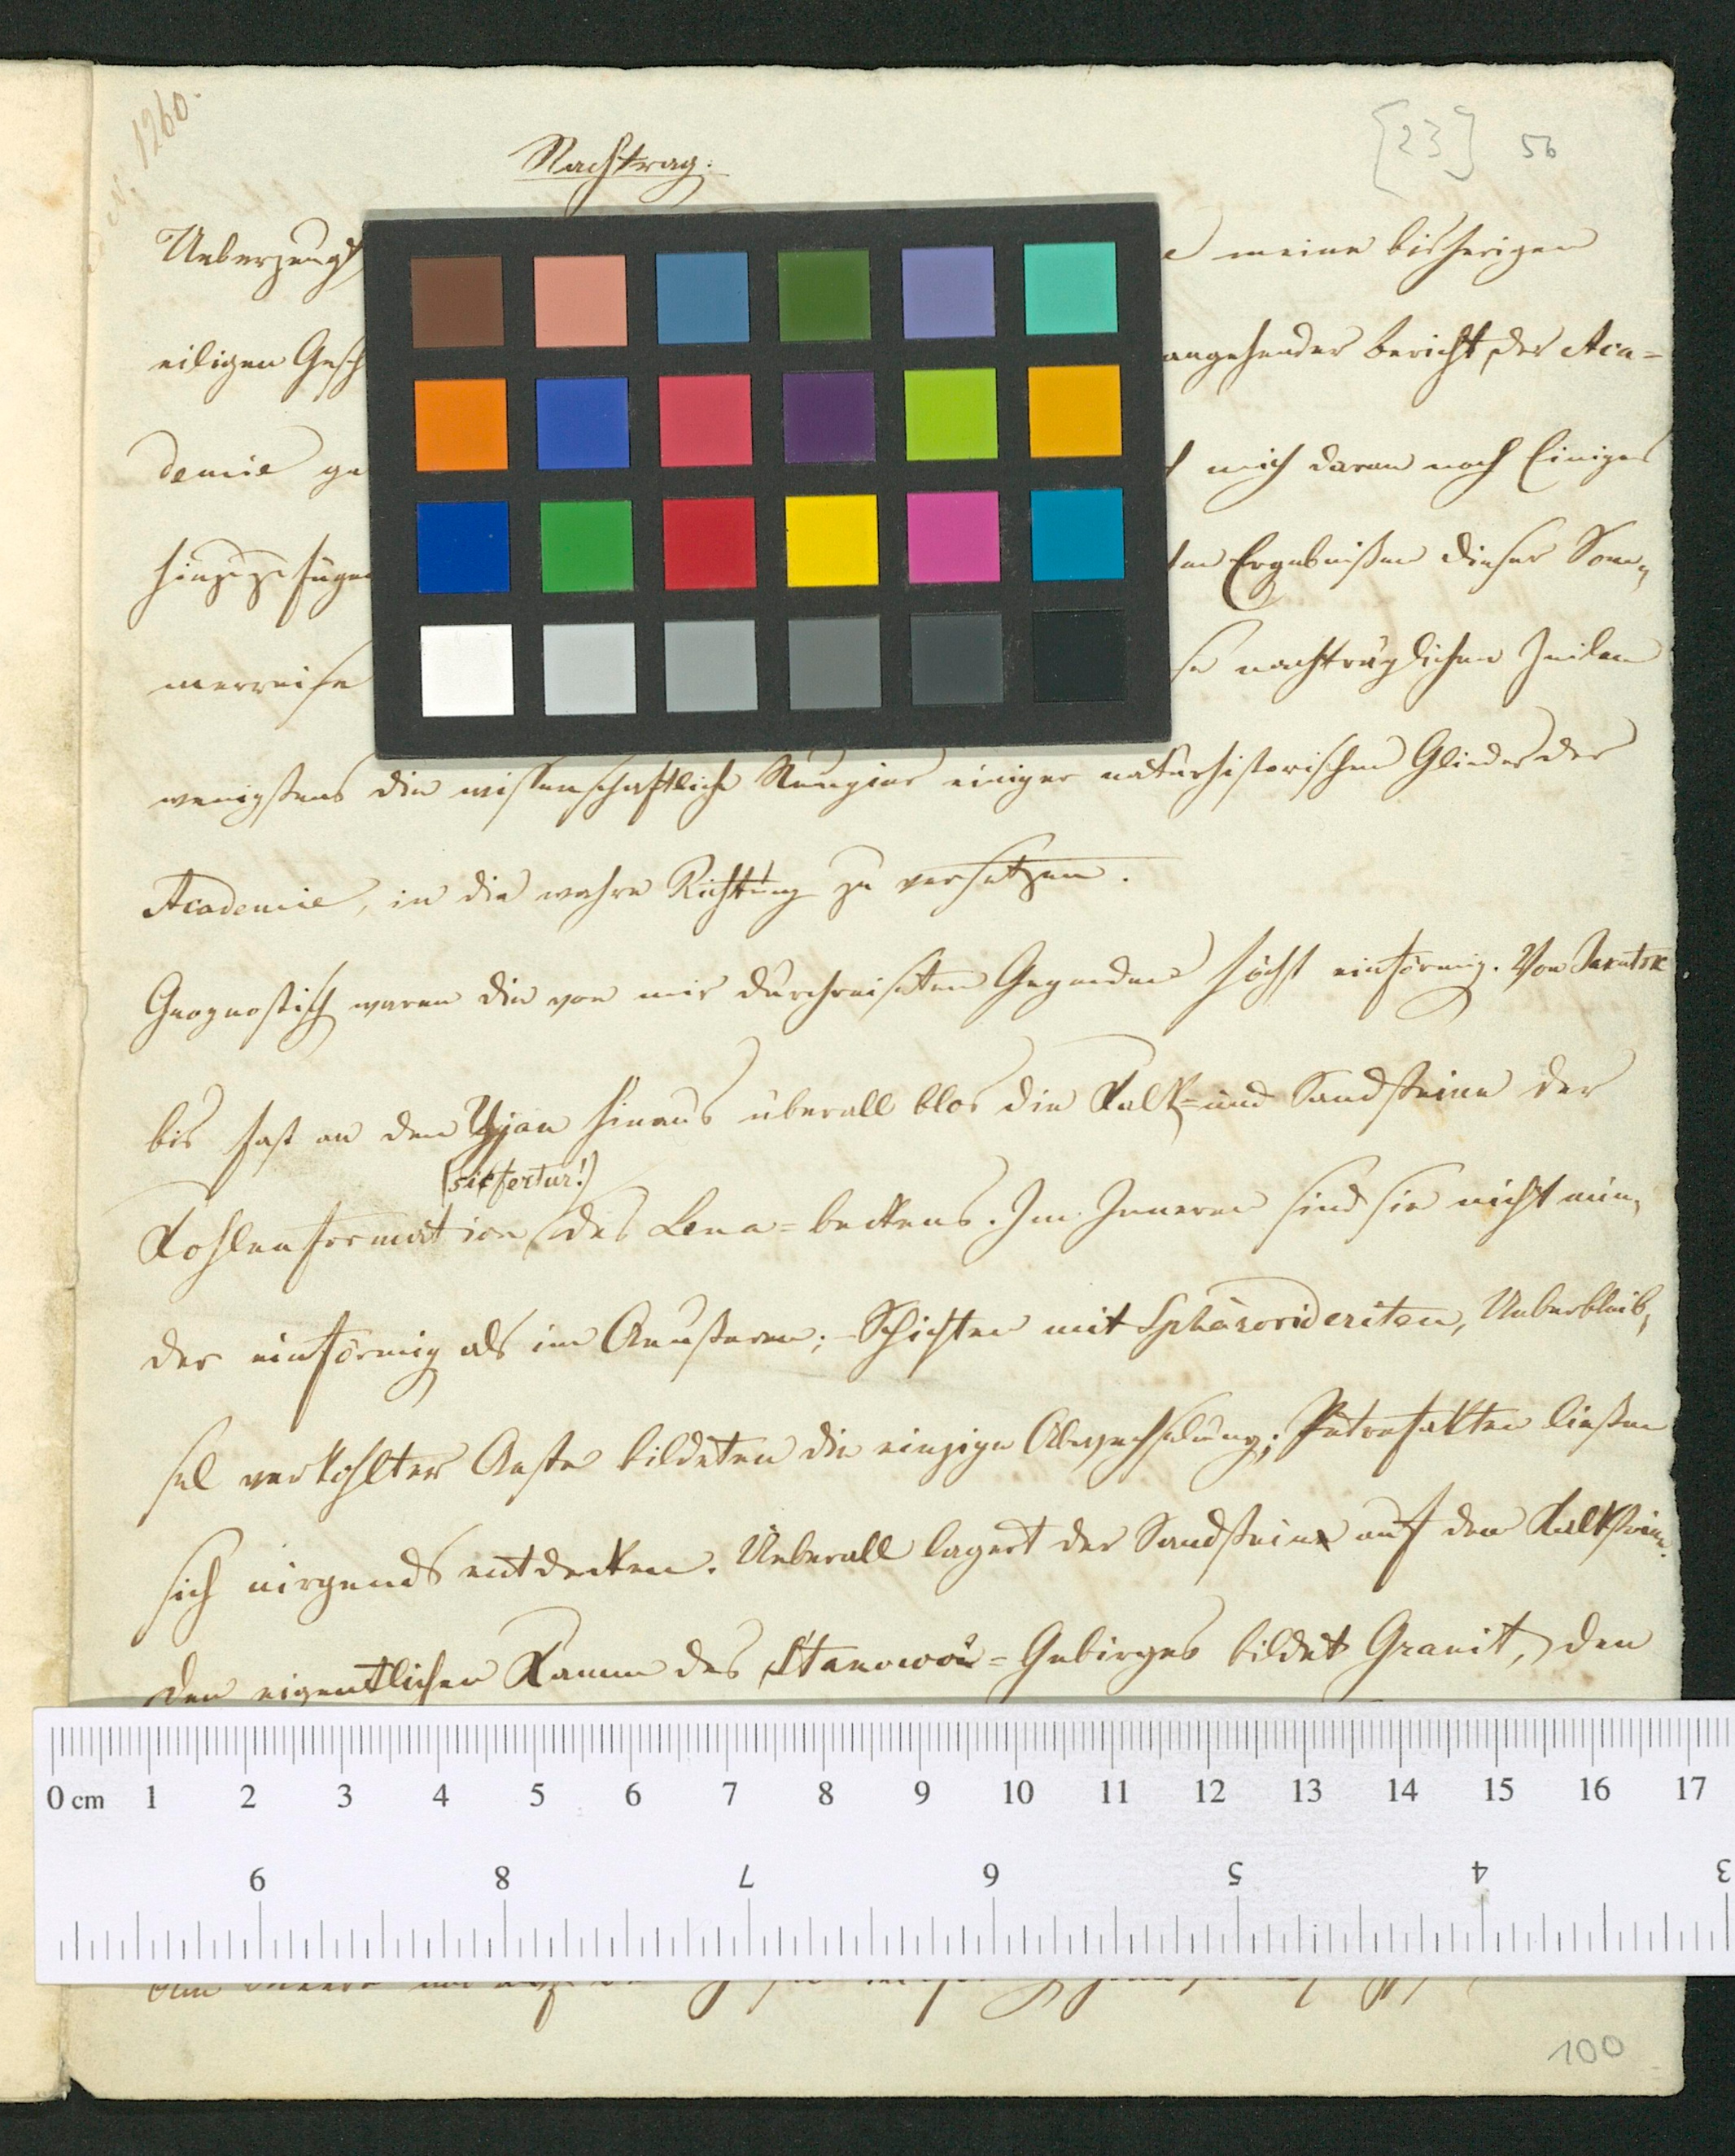 1260.
[23] 56
Nachtrag:
Ueberzeugt meine bisherigen
eiligen Gesch angehender Bericht, der Aca=
demie ge mich daran noch Einiges
hinzuzufügen Ergebnißen dieser Som„
merreise nachträglichen Zeilen
wenigstens die wissenschaftliche Neugier einiger naturhistorischen Glieder der
Academie, in die wahre Richtung zu versetzen.
Geognostisch waren die von mir durchreisten Gegenden höchst einförmig. Von Jakutsk
bis fast an den Ujan hinaus überall blos die Kalk= und Sandsteine der
(sic fertur!)
Kohlenformation des Lena=beckens. Im Inneren sind sie nicht min„
der einförmig als im Aeußeren; Schichten mit Sphärosideriten, Ueberbleib„
sel verkohlter Aeste bildeten die einzige Abwechselung; Petrefakten ließen
sich nirgends entdecken. Ueberall lagert der Sandstein auf den Kalkstein.
Den eigentlichen Kamm des Stanowoi=Gebirges bildet Granit, den
0 cm 1 2 3 4 5 6 7 8 9 10 11 12 13 14 15 16 17
9 8 7 6 5 4 3
100